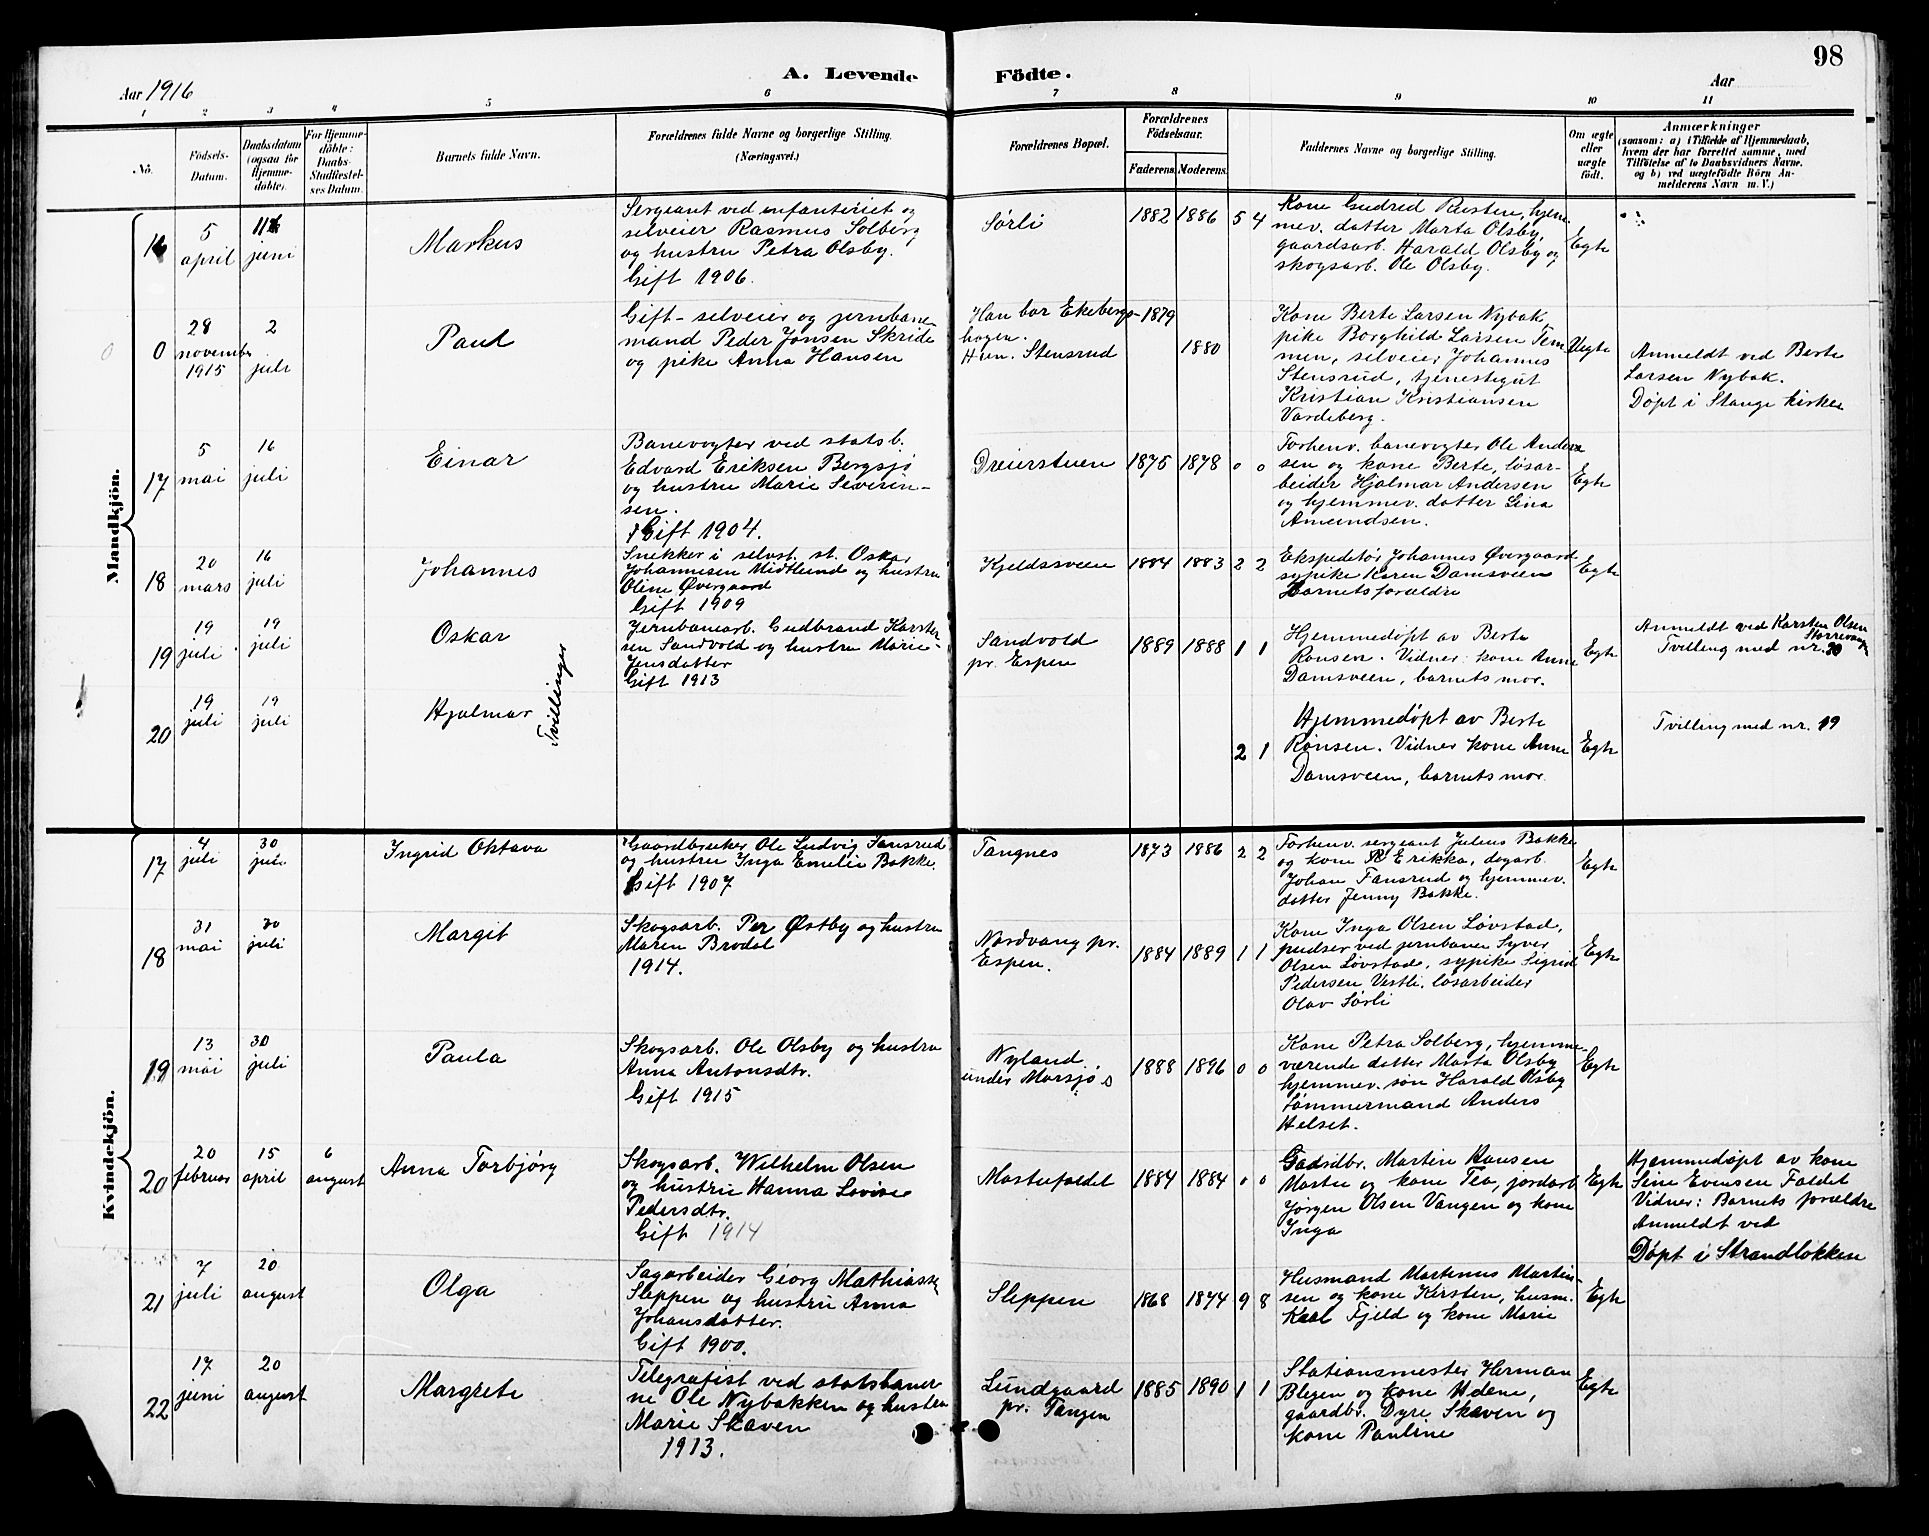 98
A. Levende Födte.
Aar 1916
Aar
1 2 3 4 5 6 7 8 9 10 11
No.
Födsels-
Datum.
Daabsdatum
(ogsaa for
Hjemme-
döbte).
For Hjemme-
döbte:
Daabs-
Stadfæstel-
ses Datum.
Barnets fulde Navn.
Forældrenes fulde Navne og borgerlige Stilling.
(Næringsvei.)
Forældrenes Bopæl.
Forældrenes
Födselsaar.
Faderens. Moderens.
Faddernes Navne og borgerlige Stilling.
Om ægte
eller
uægte
födt.
Anmærkninger
(saasom: a) i Tilfælde af Hjemmedaab,
hvem der har forrettet samme, med
Tilföielse af to Daabsvidners Navne,
og b) ved uægtefödte Börn An-
melderens Navn m. V.)
Mandkjön.
16
5
april
11
juni
Markus
Sergeant ved infanteriet og
selveier Rasmus Solberg
og hustru Petra Olsby.
Gift 1906.
Sørli
1882 1886 5 4
Kone Gudrid Rusten, hjem-
mev. datter Marta Olsby,
gaardsarb. Harald Olsby og
skogsarb. Ole Olsby.
Egte
0
28
november
1915
2
juli
Paul
Gift - selveier og jernbane-
mand Peder Jonsen Skride
og pike Anna Hansen
Han bor Ekebergs-
hagen.
Hun. Stensrud
1879
1880
Kone Berte Larsen Nybak
pike Borghild Larsen Tem-
men, selveier Johannes
Stensrud, tjenestegut
Kristian Kristiansen
Vardeberg.
Uegte
Anmeldt ved Berte
Larsen Nybak.
Døpt i Stange kirke
17
5
mai
16
juli
Einar
Banevogter ved statsb.
Edvard Eriksen Bergsjø
og hustru Marie Severin-
sen.
Gift 1904.
Dreierstuen
1875 1878 0 0
Forhenv. banevogter Ole Ander-
sen og kone Berte, løsar-
beider Hjalmar Andersen
og hjemmev. datter Lina
Amundsen.
Egte
18
20
mars
16
juli
Johannes
Snekker i selvst. st. Oskar
Johannesen Midtlund og hustru
Oline Øvergaard
Gift 1909
Kjeldsveen
1884 1883 2 2
Ekspeditør Johannes Øvergaard
sypike Karen Damsveen
Barnets forældre
Egte
19
19
juli
19
juli
Oskar
Tvillinger
Jernbanearb. Gudbrand Karsten-
sen Sandvold og hustru Marie
Jensdatter
Gift 1913
Sandvold
pr. Espen
1889 1888 1 1
Hjemmedøpt av Berte
Rønsen. Vidner: kone Anne
Damsveen, barnets mor.
Egte
Anmeldt ved Karsten Olsen
Tvilling med nr. 20
20
19
juli
19
juli
Hjalmar
2 1
Hjemmedøpt av Berte
Rønsen. Vidner kone Anne
Damsveen, barnets mor.
Egte
Tvilling med nr. 19
Kvindekjön.
17
4
juli
30
juli
Ingrid Oktava
Gaardbruker Ole Ludvig Fansrud
og hustru Inga Emelie Bakke.
Gift 1907
Tangnes
1873 1886 2 2
Forhenv. sergeant Julius Bakke
og kone Erikka, dagarb.
Johan Fansrud og hjemmev.
datter Jenny Bakke.
Egte
18
31
mai
30
juli
Margit
Skogsarb. Per Østby og hustru
Maren Brodal
1914.
Nordvang pr.
Espen.
1884 1889 1 1
Kone Inga Olsen Løvstad,
pudser ved jernbanen Syver
Olsen Løvstad, sypike Sigrid
Pedersen Vestli, løsarbeider
Olav Sørli
Egte
19
13
mai
30
juli
Paula
Skogsarb. Ole Olsby og hustru
Anna Antonsdtr.
Gift 1915
Nyland
under Morsjø
1888 1896 0 0
Kone Petra Solberg, hjemme-
værende datter Marta Olsby
hjemmev. søn Harald Olsby
tømmermand Anders
Helset.
Egte
20
20
februar
15
april
6
august
Anna Torbjørg
Skogsarb. Wilhelm Olsen
og hustru Hanna Lovise
Pedersdtr.
Gift 1914
Mostufaldet
1884 1884 0 0
Gardbr. Martin Hansen
Mostu og kone Tea, jordarb.
Jørgen Olsen Vangen og kone
Inga
Egte
Hjemmedøpt av kone
Line Evensen Faldet
Vidner: Barnets forældre
Anmeldt ved
Døpt i Strandløkken
21
7
juli
20
august
Olga
Sagarbeider Georg Mathiassen
Sleppen og hustru Anna
Johansdatter.
Gift 1900.
Sleppen
1868 1874 9 8
Husmand Martinus Martin-
sen og kone Kirsten, husm.
Karl Fjeld og kone Marie
Egte
22
17
juni
20
august
Margrete
Telegrafist ved statsbaner-
ne Ole Nybakken og hustru
Marie Skaven
1913.
Lundgaard
pr. Tangen
1885 1890 1 1
Stationsmester Herman
Blegen og kone Udene,
gaardbr. Dyre Skaven og
kone Pauline
Egte